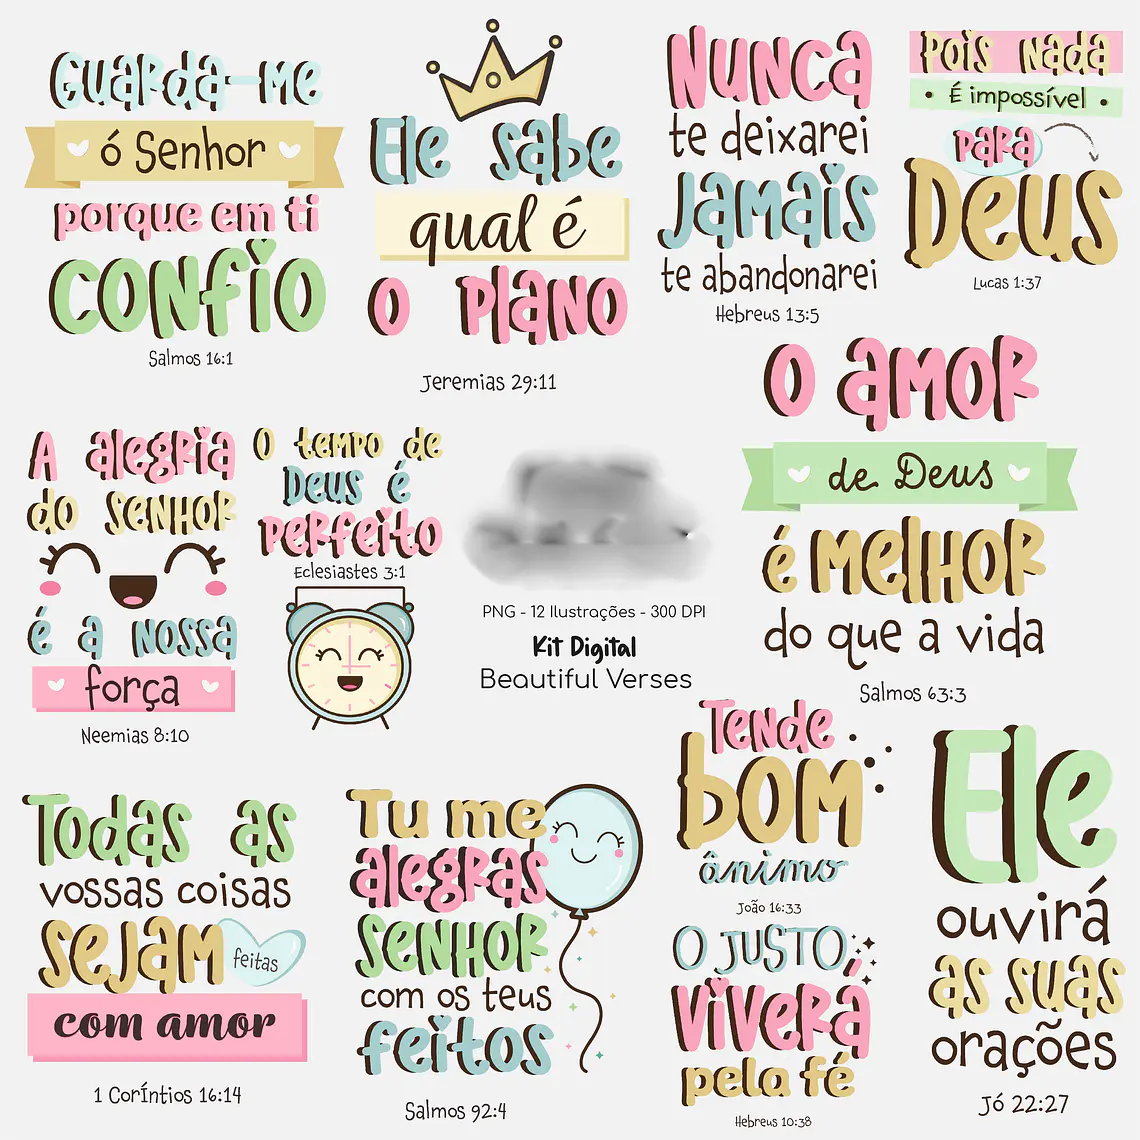 Guarda-me
ó Senhor
porque em ti
confio
Salmos 16:1
Ele sabe
qual é
o plano
Jeremias 29:11
Nunca
te deixarei
Jamais
te abandonarei
Hebreus 13:5
Pois nada
• É impossível •
para
Deus
Lucas 1:37
A alegria
do Senhor
é a nossa
força
Neemias 8:10
O tempo de
Deus é
perfeito
Eclesiastes 3:1
PNG - 12 Ilustrações - 300 DPI
Kit Digital
Beautiful Verses
O amor
de Deus
é melhor
do que a vida
Salmos 63:3
Todas as
vossas coisas
sejam
feitas
com amor
1 CorÍntios 16:14
Tu me
alegras
Senhor
com os teus
feitos
Salmos 92:4
Tende
bom
ânimo
João 16:33
O JUSTO,
viverá
pela fé
Hebreus 10:38
Ele
ouvirá
as suas
orações
Jó 22:27